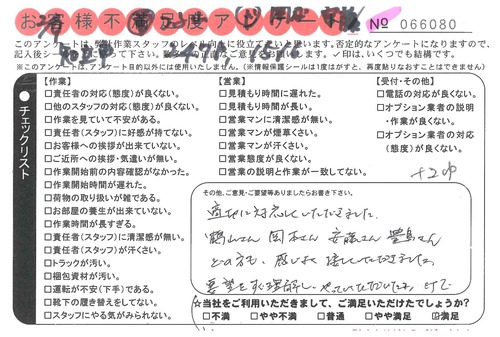 お客様不満足度アンケート
No 066080
このアンケートは、弊社作業スタッフのレベル向上に役立てたいと思います。否定的なアンケートになりますので、
※このアンケートは、アンケート目的以外には使用いたしません。(※情報保護シールは1度はがすと、再度貼りなおすことはできません)
チェックリスト
【作業】
□責任者の対応(態度)が良くない。
□他のスタッフの対応(態度)が良くない。
□作業を見ていて不安がある。
□責任者(スタッフ)に好感が持てない。
□お客様への挨拶が出来ていない。
□ご近所への挨拶・気遣いが無い。
□作業開始前の内容確認がなかった。
□作業開始時間が遅れた。
□荷物の取り扱いが雑である。
□お部屋の養生が出来ていない。
□作業時間が長すぎる。
□責任者(スタッフ)に清潔感が無い。
□責任者(スタッフ)が汗くさい。
□トラックが汚い。
□梱包資材が汚い。
□運転が不安(下手)である。
□靴下の履き替えをしてない。
□スタッフにやる気がみられない。
【営業】
□見積もり時間に遅れた。
□見積もり時間が長い。
□営業マンに清潔感が無い。
□営業マンが煙草くさい。
□営業マンが汗くさい。
□営業態度が良くない。
□営業の説明と作業が一致してない。
【受付・その他】
□電話の対応が良くない。
□オプション業者の説明
・作業が良くない。
□オプション業者の対応
(態度)が良くない。
その他、ご意見・ご要望等ありましたらお書き下さい。
適切に対応していただきました。
鶴山さん 岡本さん 安藤さん 豊島さん
どの方も、感じよく接していただきました。
☆当社をご利用いただきまして、ご満足いただけたでしょうか?
□不満 □やや不満 □普通 □やや満足 ☑満足